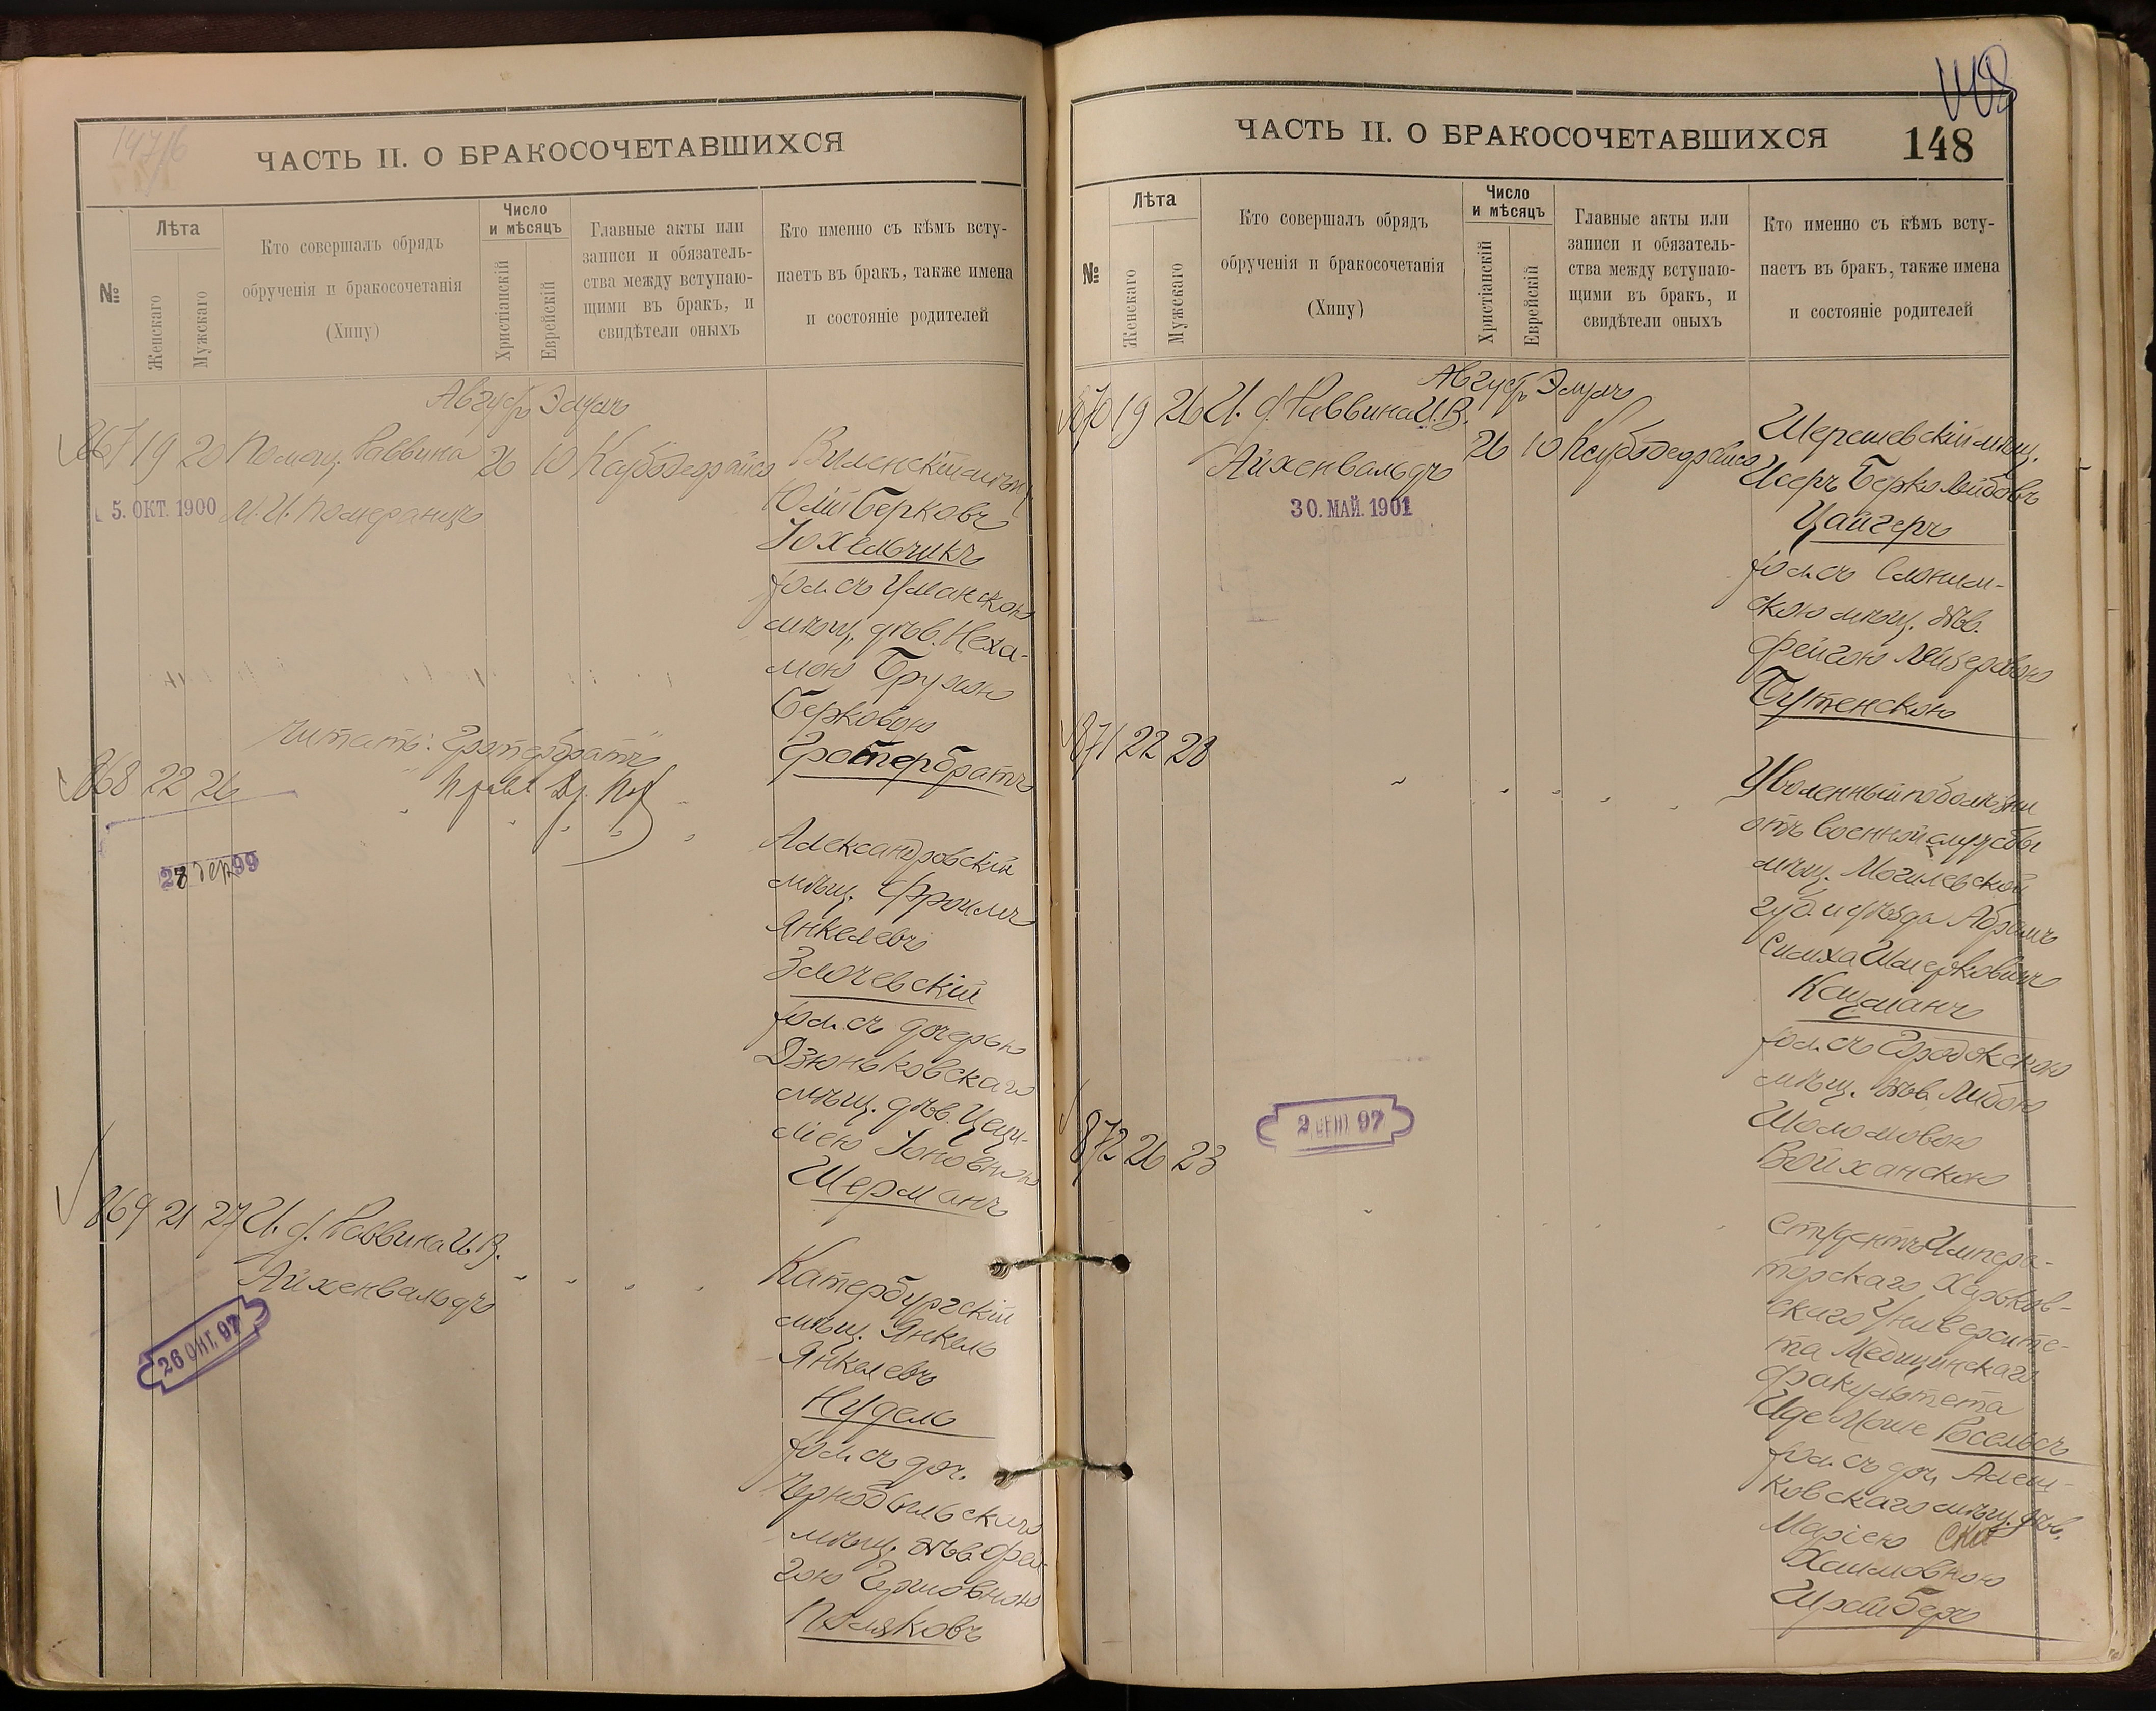 ЧАСТЬ II. О БРАКОСОЧЕТАВШИХСЯ
№
Лѣта
Женскаго
Мужскаго
Кто совершалъ обрядъ
обрученія и бракосочетанія
(Хипу)
Число
и мѣсяцъ
Христіанскій
Еврейскій
Главные акты или
записи и обязатель-
ства между вступаю-
щими въ бракъ, и
свидѣтели оныхъ
Кто именно съ кѣмъ всту-
паетъ въ бракъ, также имена
и состояніе родителей
Август Элулъ
867 19 20 Помощ. Раввина 26 10
М. И. Померанцъ
5. ОКТ. 1900
Виленскій мѣщ.
Юлій Берковъ
Іохельчикъ
съ Уманскою
мѣщ. дѣв. Неха-
мою Брухою
Берковою
Гротербратъ
Читать: "Гротербратъ"
868 22 26
99
Александровскій
мѣщ. Фроимъ
Янкелевъ
Злочевскій
съ дочерью
Дзюньковскаго
мѣщ. дѣв. Цеци-
ліею Іоновною
Шерманъ
869 21 27 И. д. Раввина И. В.
Айхенвальдъ
26 ОКТ. 97
Катербургскій
мѣщ. Янкель
Янкелевъ
Нудель
съ доч.
Чернобыльскаго
мѣщ. дѣв. Фей-
гою Гершовною
Поляковъ
ЧАСТЬ II. О БРАКОСОЧЕТАВШИХСЯ
148
№
Лѣта
Женскаго
Мужскаго
Кто совершалъ обрядъ
обрученія и бракосочетанія
(Хипу)
Число
и мѣсяцъ
Христіанскій
Еврейскій
Главные акты или
записи и обязатель-
ства между вступаю-
щими въ бракъ, и
свидѣтели оныхъ
Кто именно съ кѣмъ всту-
паетъ въ бракъ, также имена
и состояніе родителей
Август Элулъ
870 19 26 И. д. Раввина И. В.
Айхенвальдъ 26 10
30. МАЙ. 1901
Шерешевскій мѣщ.
Исеръ Берко Лейбовъ
Цайгеръ
съ Слоним-
скою мѣщ. дѣв.
Фейгою Лейзеровою
Бутенскою
871 22 28
Уволенный по болѣзни
отъ военной службы
мѣщ. Могилевской
губ. и уѣзда Абрамъ
Симха Шмерковичъ
Кацманъ
съ Городокскою
мѣщ. дѣв. Либою
Шоломовою
Войханскою
872 26 23
2 СЕН. 97
Студентъ Импера-
торскаго Харьков-
скаго Университе-
та Медицинскаго
факультета
Иде Моше Росельсъ
съ доч. Алеш-
ковскаго мѣщ. дѣв.
Маріею
Хаимовною
Шрайберъ